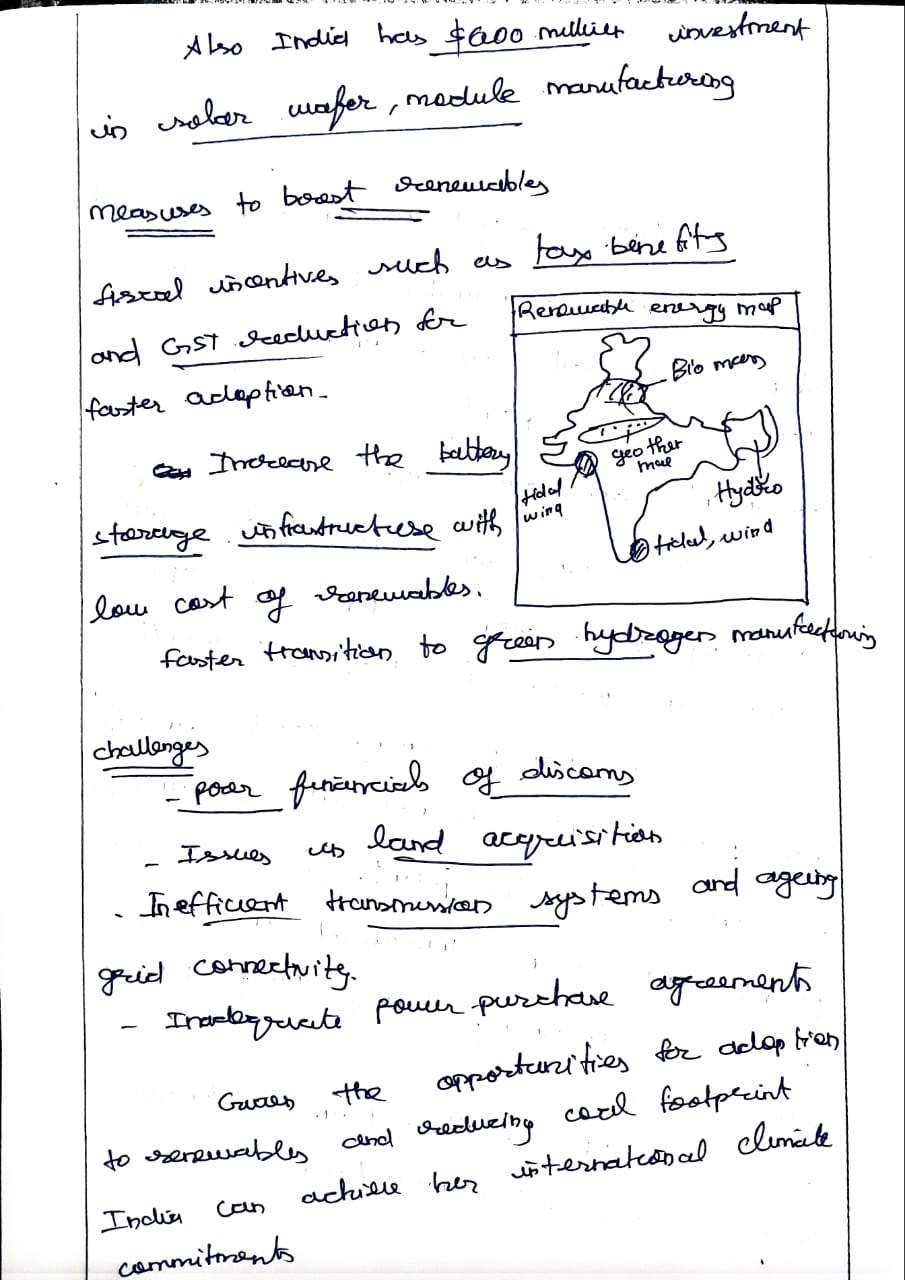 Also India has $600 million investment
in solar wafer, module manufacturing
measures to boost renewables
fiscal incentives such as tax benefits
and GST reduction for
faster adoption.
Renewable energy map
Bio mass
geo ther
mal
tidal
wind
Hydro
tidal, wind
Increase the battery
storage infrastructure with
low cost of renewables.
faster transition to green hydrogen manufacturing
challenges
- poor financials of discoms
- Issues in land acquisition
- Inefficient transmission systems and ageing
grid connectivity.
- Inadequate power purchase agreements
Given the opportunities for adoption
to renewables and reducing coal footprint
India can achieve her international climate
commitments